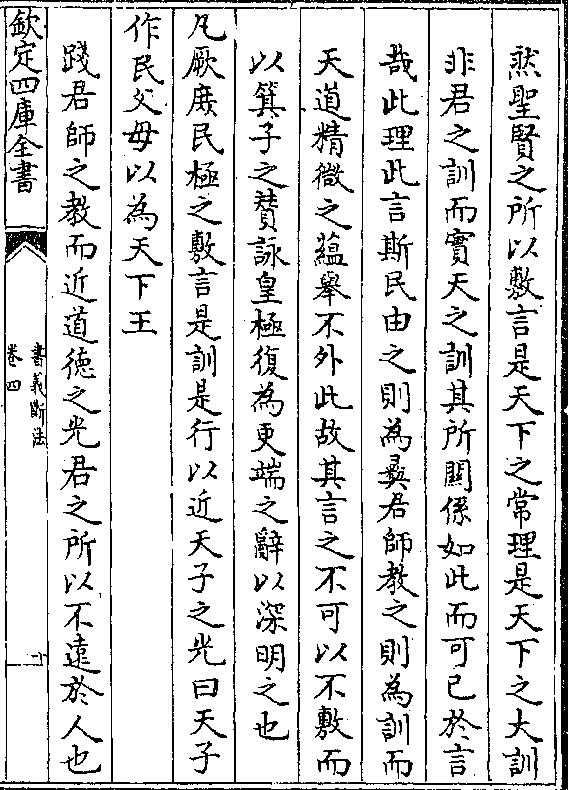 然聖賢之所以敷言是天下之常理是天下之大訓
非君之訓而實天之訓其所關係如此而可已於言
哉此理此言斯民由之則為彞君師教之則為訓而
天道精微之蘊舉不外此故其言之不可以不敷而
以箕子之贊詠皇極復為更端之辭以深明之也
凡厥庻民極之敷言是訓是行以近天子之光曰天子
作民父母以為天下王
踐君師之教而近道德之光君之所以不遠於人也
欽定四庫全書
書義斷法
卷四
十